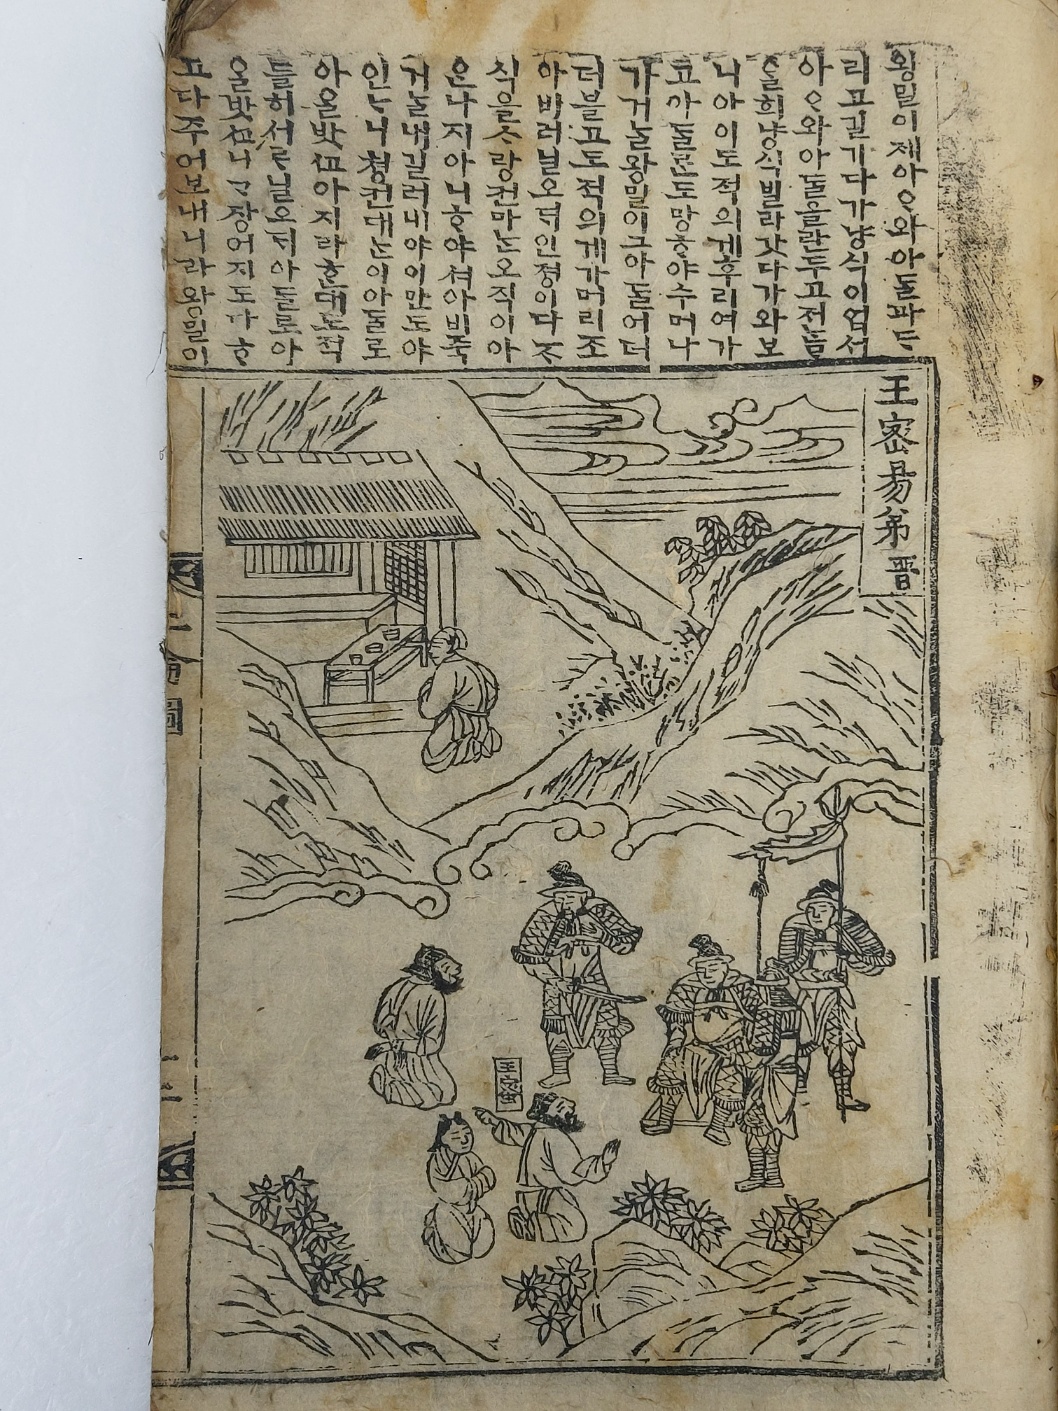 왕밀이제아ᅌᆞ와아ᄃᆞᆯ파ᄃᆞ
리고긜기다가냥식이업서
아ᅌᆞ와아ᄃᆞᆯ을란두고전ᄂᆞᆷ
을희냥식빌라갓다가와보
니아이도적의게후리여가
고아ᄃᆞᆯ은도망ᄒᆞ야수머나
가거ᄂᆞᆯ왕밀이그아ᄃᆞᆯ어더
더블고도적의게가머리조
아비러닐오ᄃᆡ인졍이다ᄌᆞ
식을ᄉᆞ랑컨마ᄂᆞᆫ오직이아
ᄋᆞᆫ나지아니ᄒᆞ야셔아비죽
거ᄂᆞᆯ내길러내야이만도야
인ᄂᆞ니쳥컨대ᄂᆞᆫ이아ᄃᆞᆯ로
아ᄋᆞᆯ밧ᄭᅩ아지라ᄒᆞᆫ대도적
들히서ᄅᆞ닐오ᄃᆡ아ᄃᆞᆯ로아
ᄋᆞᆯ밧ᄭᅩ니ᄀᆞ장어지도다ᄒᆞ
고다주어보내니라왕밀이
王密易弟 晋
王密
二
圖